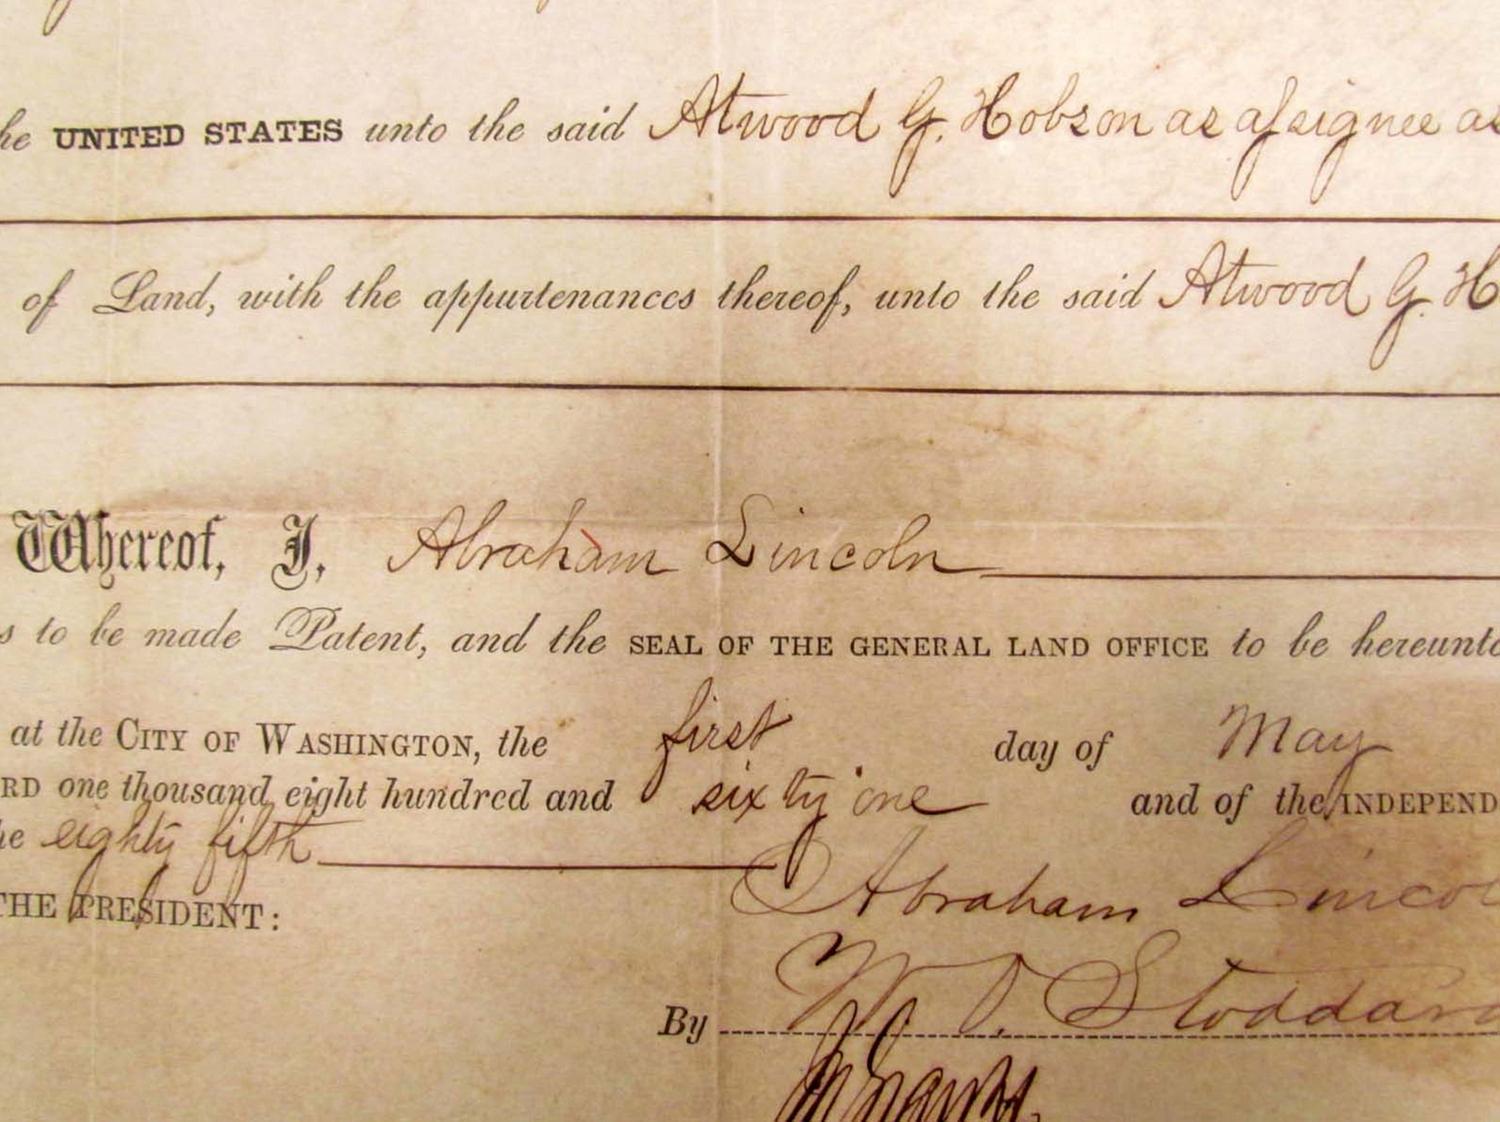 he UNITED STATES unto the said Atwood G. Hobson as assignee as
of Land, with the appurtenances thereof, unto the said Atwood G. H
Whereof, I, Abraham Lincoln
s to be made Patent, and the SEAL OF THE GENERAL LAND OFFICE to be hereunto
at the CITY OF WASHINGTON, the first day of May
RD one thousand eight hundred and sixty one and of the INDEPEND
he eighty fifth
THE PRESIDENT: Abraham Lincol
By W. O. Stoddard